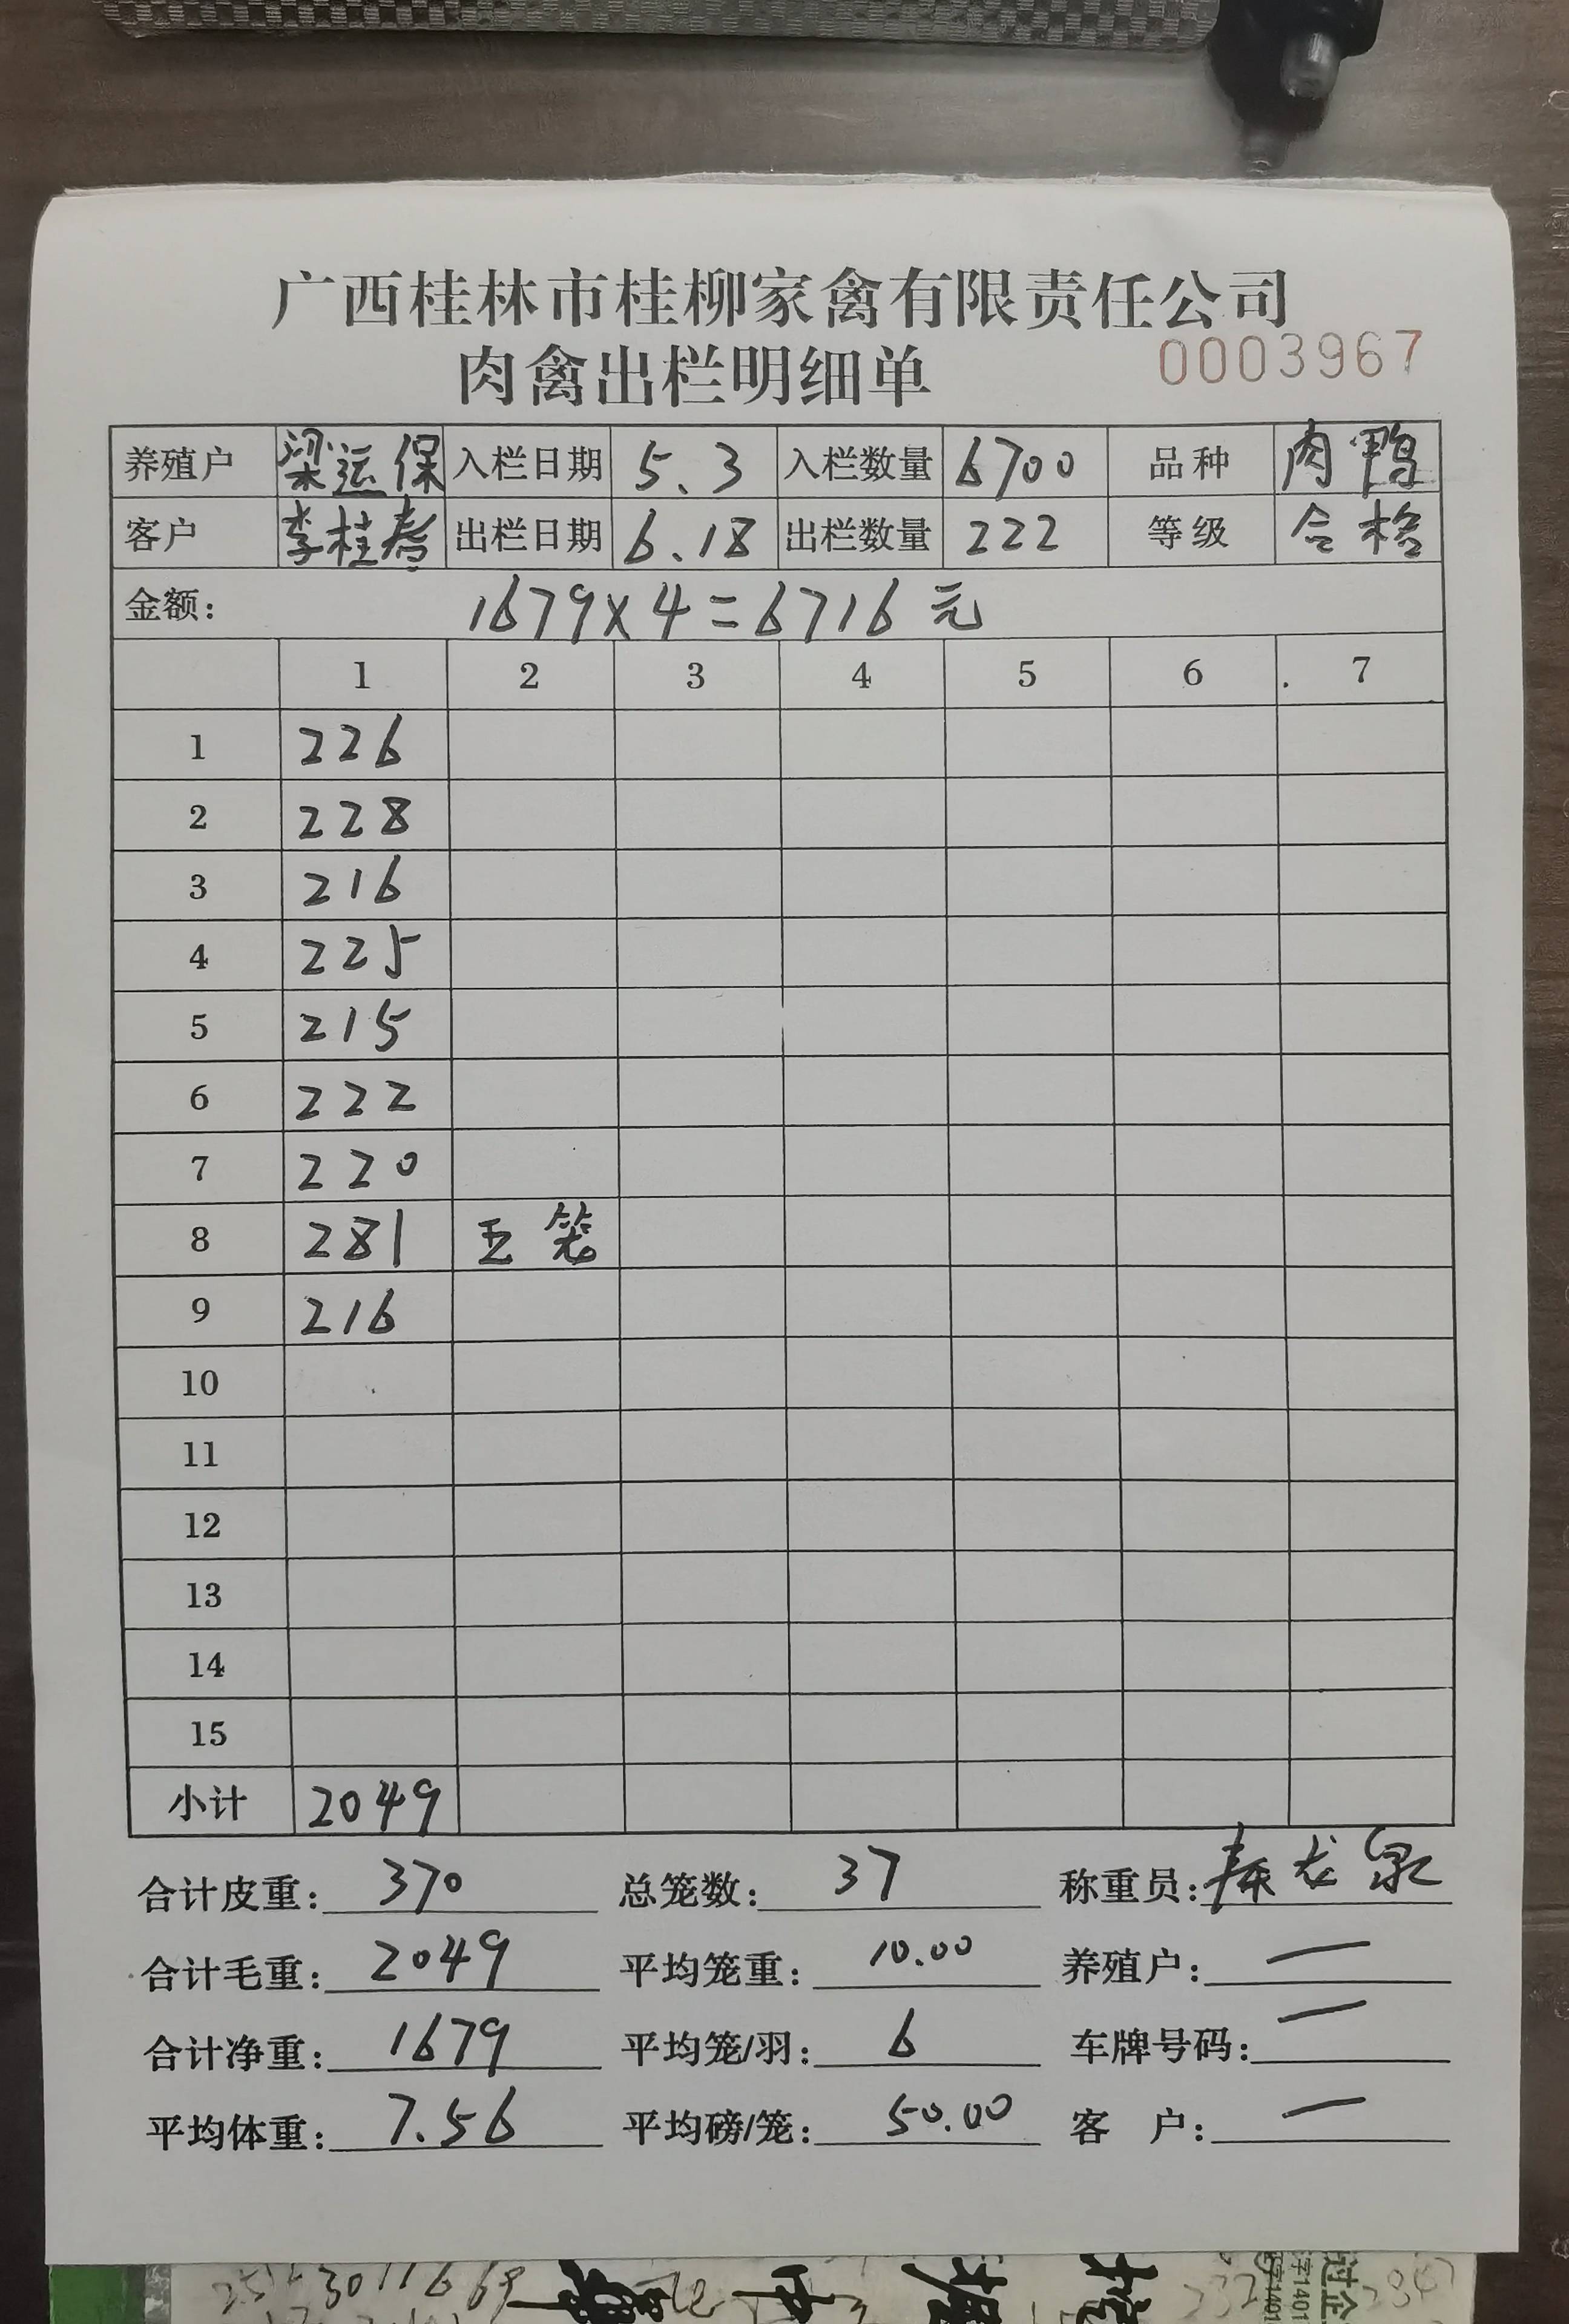 广西桂林市桂柳家禽有限责任公司
肉禽出栏明细单 0003967
养殖户 梁运保 入栏日期 5.3 入栏数量 6700 品种 肉鸭
客户 李桂春 出栏日期 6.18 出栏数量 222 等级 合格
金额: 1679×4=6716元
1 2 3 4 5 6 7
1 226
2 228
3 216
4 225
5 215
6 222
7 220
8 281 五笼
9 216
10
11
12
13
14
15
小计 2049
合计皮重: 370 总笼数: 37 称重员: 秦龙泉
合计毛重: 2049 平均笼重: 10.00 养殖户: 一
合计净重: 1679 平均笼/羽: 6 车牌号码: 一
平均体重: 7.56 平均磅/笼: 50.00 客户: 一